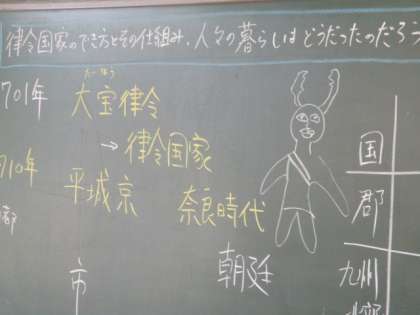 律令国家のでき方とその仕組み、人々の暮らしはどうだったのだろう
たいほう
701年 大宝律令
→律令国家
710年 平城京 奈良時代
都
市
朝廷
国
郡
九州